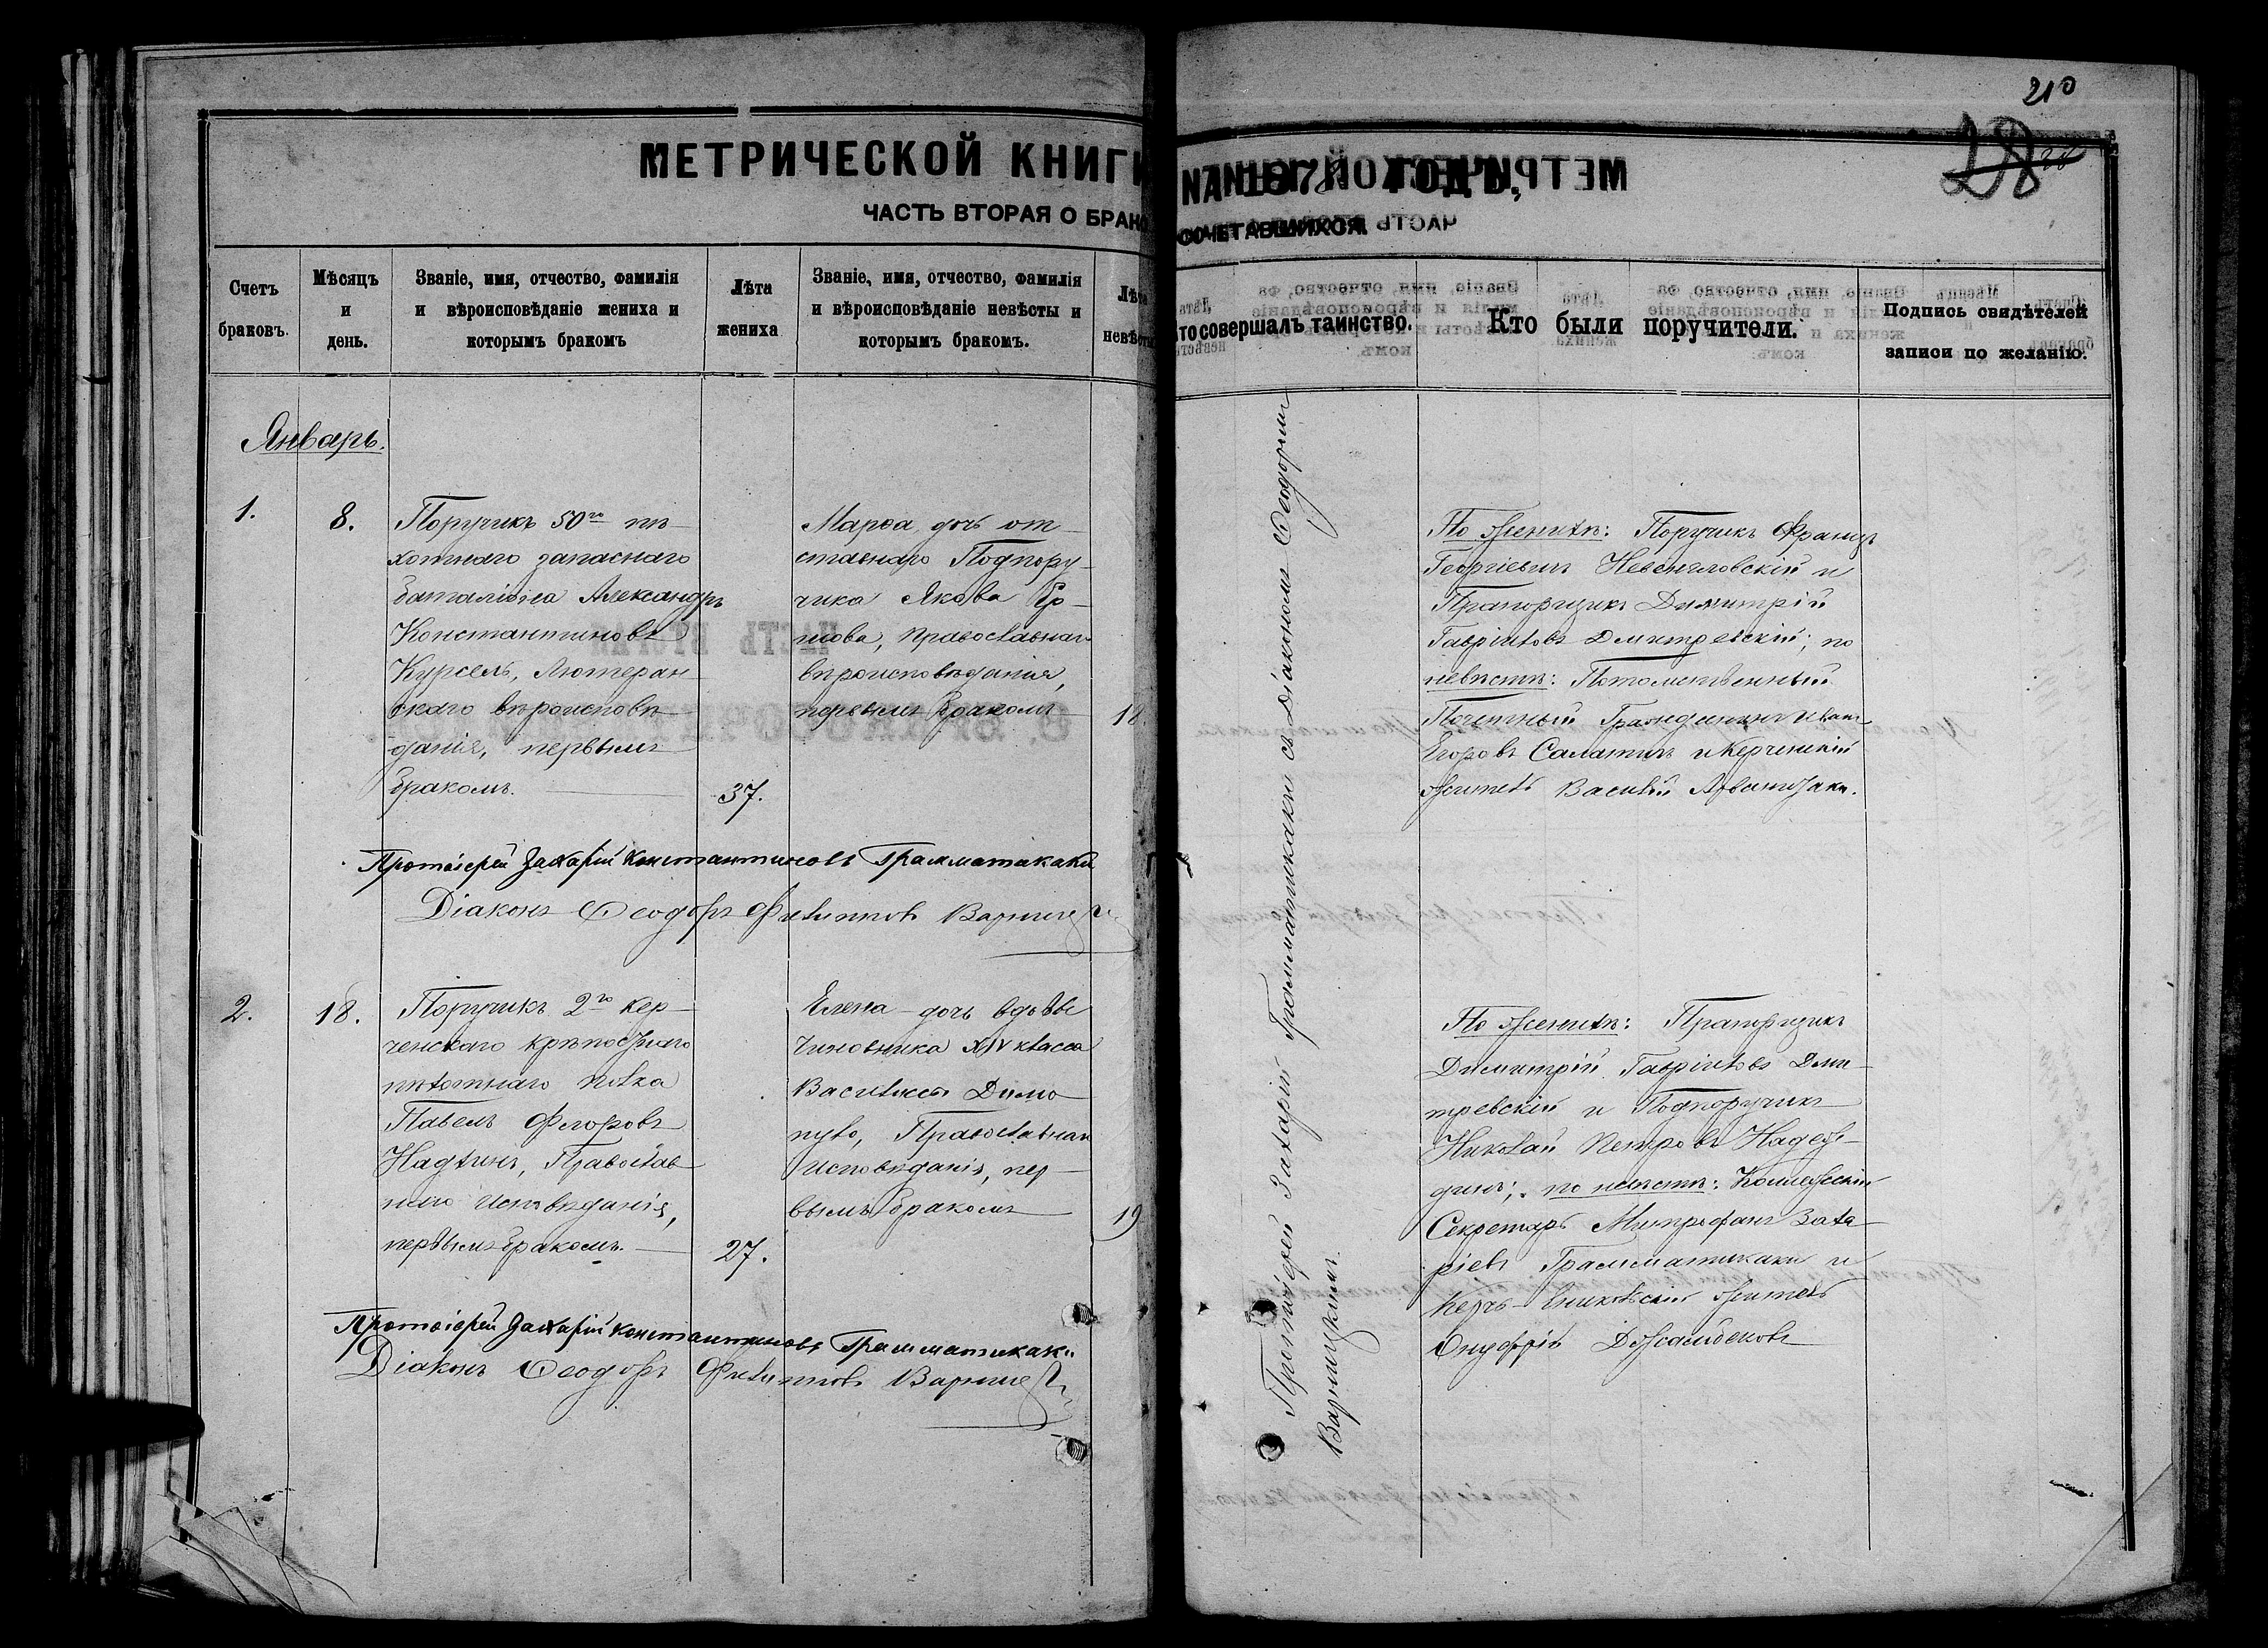 210
28
МЕТРИЧЕСКОЙ КНИГИ НА 1878 ГОДЪ,
ЧАСТЬ ВТОРАЯ О БРАКОСОЧЕТАВШИХСЯ.
Счетъ браковъ.
Мѣсяцъ и день.
Званіе, имя, отчество, фамилія и вѣроисповѣданіе жениха и которымъ бракомъ
Лѣта жениха
Званіе, имя, отчество, фамилія и вѣроисповѣданіе невѣсты и которымъ бракомъ.
Лѣта невѣсты
Кто совершалъ таинство.
Кто были поручители.
Подпись свидѣтелей записи по желанію.
Январь.
1.
8.
Поручикъ 50го пѣ-
хотнаго запаснаго
баталіона Александръ
Константиновъ
Курсель, Лютеран-
скаго вѣроисповѣ-
данія, первымъ
бракомъ.
37.
Марѳа дочь от-
ставнаго Подпору-
чика Якова
православнаго
вѣроисповѣданія,
первымъ бракомъ
18
По женихѣ: Поручикъ Францъ
Георгіевичъ и
Прапорщикъ Димитрій
Гавріиловъ Дмитревскій; по
невѣстѣ: Потомственный
Почетный Гражданинъ Иванъ
Егоровъ Салатинъ и Керченскій
житель Василій
Протоіерей Захарій Константиновъ Грамматикаки
Діаконъ Ѳеодоръ Филипповъ
2.
18.
Поручикъ 2го Кер-
ченскаго крѣпостнаго
пѣхотнаго полка
Павелъ Ѳедоровъ
Православ-
наго Исповѣданія,
первымъ бракомъ.
27.
Елена дочь вдовы
Чиновника XIV класса
Василисы Димо-
пуло, Православнаго
Исповѣданія, пер-
вымъ бракомъ
19
По женихѣ: Прапорщикъ
Димитрій Гавріиловъ Дми-
тревскій и Подпоручикъ
Николай Петровъ Надеж-
динъ; по невѣстѣ: Коллежскій
Секретарь Митрофанъ Заха-
ріевъ Грамматикаки и
Керчь-Ениколскій житель
Онуфрій Джамбековъ
Протоіерей Захарій Константиновъ Грамматикаки
Діаконъ Ѳеодоръ Филипповъ
Протоіерей Захарій Грамматикаки съ Діакономъ Ѳеодоромъ
Варницкимъ.